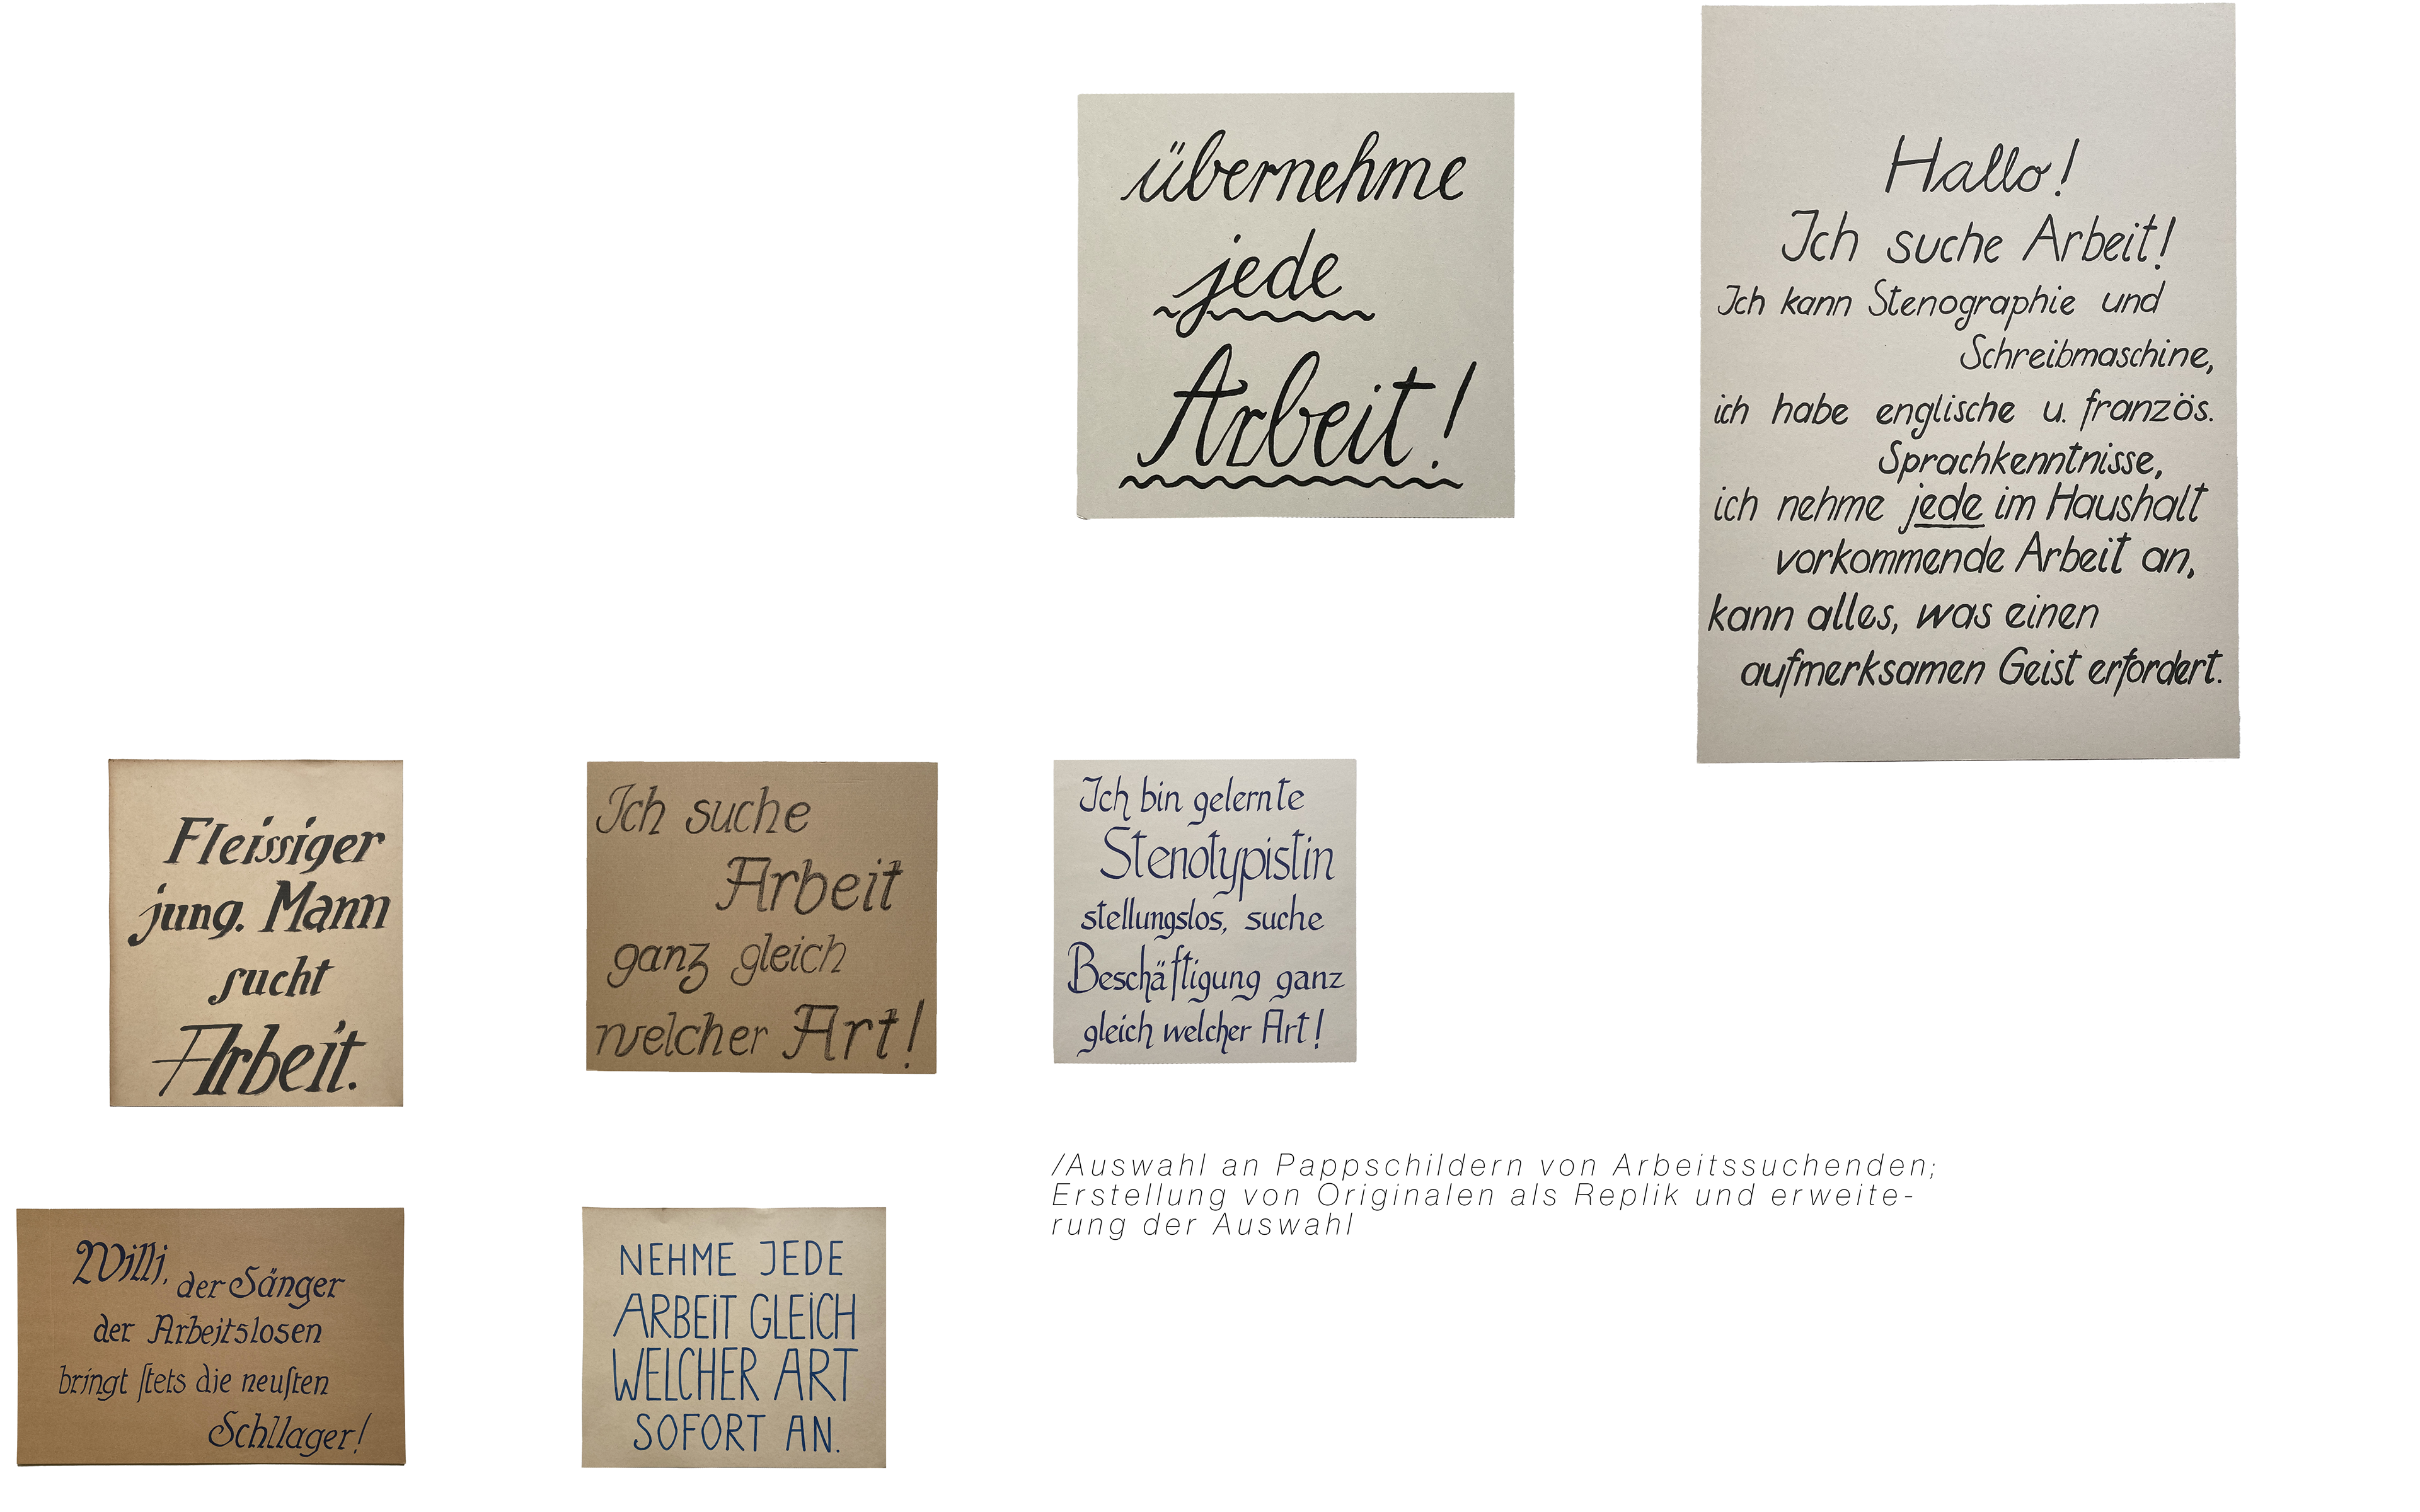 übernehme
jede
Arbeit!
Hallo!
Ich suche Arbeit!
Ich kann Stenographie und
Schreibmaschine,
ich habe englische u. französ.
Sprachkenntnisse,
ich nehme jede im Haushalt
vorkommende Arbeit an,
kann alles, was einen
aufmerksamen Geist erfordert.
Fleissiger
jung. Mann
sucht
Arbeit.
Ich suche
Arbeit
ganz gleich
welcher Art!
Ich bin gelernte
Stenotypistin
stellungslos, suche
Beschäftigung ganz
gleich welcher Art!
Willi, der Sänger
der Arbeitslosen
bringt ſtets die neuſten
Schllager!
NEHME JEDE
ARBEiT GLEiCH
WELCHER ART
SOFORT AN.
/Auswahl an Pappschildern von Arbeitssuchenden;
Erstellung von Originalen als Replik und erweite-
rung der Auswahl